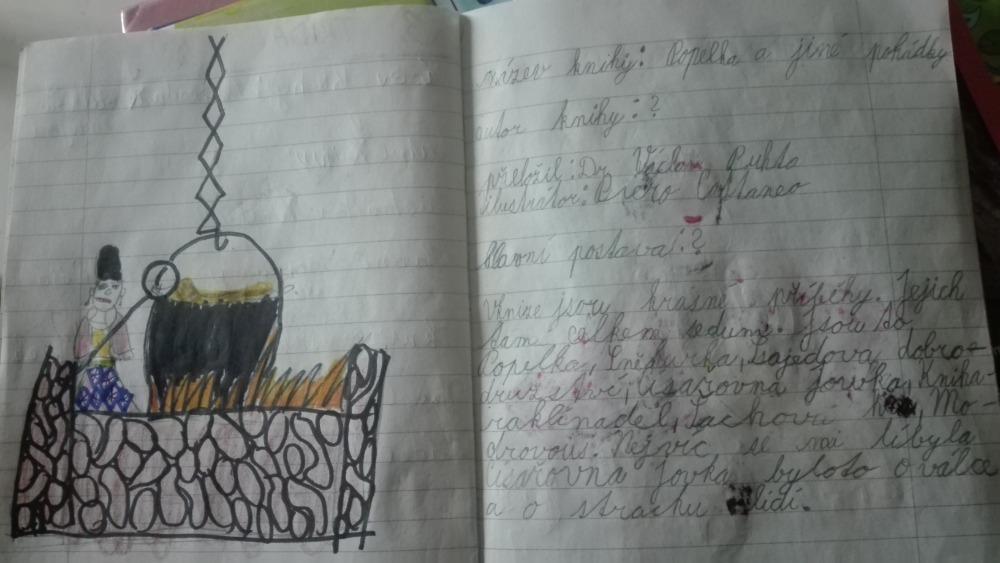 název knihy: Popelka a jiné pohádky
autor knihy: ?
přeložil: Dr. Václav Pukta
ilustrátor: Piero Cattaneo
hlavní postava: ?
Vknize jsou krásné příběhy. Jejich
tam celkem sedum. Jsou to
Popelka, Sněhurka, Sajedova dobro-
družství, Usařovna Jovka, Kniha-
zaklínadel, Šachoví, Mo-
drovous. Nejvíc se mi líbyla
Usařovna Jovka byloto ovalce
a o strachu lidí.